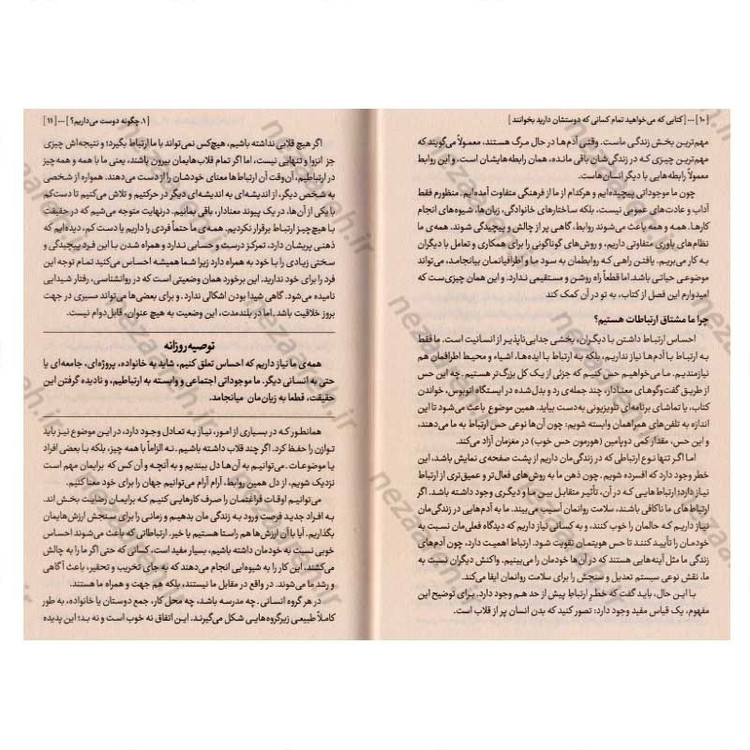 [ ۱۰ ] ... [ کتابی که می‌خواهید تمام کسانی که دوستشان دارید بخوانند ]
مهم‌ترین بخش زندگی ماست. وقتی آدم‌ها در حال مرگ هستند، معمولاً می‌گویند که
مهم‌ترین چیزی که در زندگی‌شان باقی مانده، همان رابطه‌هایشان است، و این روابط
معمولاً رابطه‌هایی با دیگر انسان‌هاست.
چون ما موجوداتی پیچیده‌ایم و هرکدام از ما از فرهنگی متفاوت آمده‌ایم. منظورم فقط
آداب و عادت‌های عمومی نیست، بلکه ساختارهای خانوادگی، زبان‌ها، شیوه‌های انجام
کارها. همه و همه باعث می‌شوند روابط، گاهی پر از چالش و پیچیدگی شوند. همه‌ی ما
نظام‌های باوری متفاوتی داریم، و روش‌های گوناگونی را برای همکاری و تعامل با دیگران
به کار می‌بریم. یافتن راهی که روابطمان به سود ما و اطرافیانمان بیانجامد، می‌تواند
موضوعی حیاتی باشد. اما قطعاً راه روشن و مستقیمی ندارد. و این همان چیزی‌ست که
امیدوارم این فصل از کتاب، به تو در آن کمک کند
چرا ما مشتاق ارتباطات هستیم؟
احساس ارتباط داشتن با دیگران، بخشی جدایی‌ناپذیر از انسانیت است. ما فقط
به ارتباط با آدم‌ها نیاز نداریم، بلکه به ارتباط با ایده‌ها، اشیاء و محیط اطرافمان هم
نیازمندیم. ما می‌خواهیم حس کنیم که جزئی از یک کل بزرگ‌تر هستیم. چه این حس
از طریق گفت‌وگوهای معنادار، چند جمله‌ی رد و بدل‌شده در ایستگاه اتوبوس، خواندن
کتاب، یا تماشای برنامه‌ای تلویزیونی به‌دست بیاید. همین موضوع باعث می‌شود تا این
اندازه به تلفن‌های همراهمان وابسته شویم؛ چون آن‌ها نوعی حس ارتباط به ما می‌دهند،
و این حس، مقدار کمی دوپامین (هورمون حس خوب) در مغزمان آزاد می‌کند.
اما اگر تنها نوع ارتباطی که در زندگی‌مان داریم از پشت صفحه‌ی نمایش باشد، این
خطر وجود دارد که افسرده شویم. چون ذهن ما به روش‌های فعال‌تر و عمیق‌تری از ارتباط
نیاز دارد؛ ارتباط‌هایی که در آن، تأثیر متقابل بین ما و دیگری وجود داشته باشد. اگر
ارتباط‌های ما ناکافی باشند، سلامت روانمان آسیب می‌بیند. ما به آدم‌هایی در زندگی‌مان
نیاز داریم که حالمان را خوب کنند، و به کسانی نیاز داریم که دیدگاه فعلی‌مان نسبت به
خودمان را تأیید کنند تا حس هویتمان تقویت شود. ارتباط اهمیت دارد، چون آدم‌های
زندگی ما مثل آینه‌هایی هستند که در آن‌ها خودمان را می‌بینیم. واکنش دیگران نسبت به
ما، نقش نوعی سیستم تعدیل و سنجش را برای سلامت روانمان ایفا می‌کند.
با این حال، باید گفت که خطر ارتباطِ بیش از حد هم وجود دارد. برای توضیح این
مفهوم، یک قیاس مفید وجود دارد: تصور کنید که بدن انسان پر از قلاب است.
[ ۱. چگونه دوست می‌داریم؟ ] ... [ ۱۱ ]
اگر هیچ قلابی نداشته باشیم، هیچ‌کس نمی‌تواند با ما ارتباط بگیرد؛ و نتیجه‌اش چیزی
جز انزوا و تنهایی نیست، اما اگر تمام قلاب‌هایمان بیرون باشند، یعنی ما با همه و همه‌چیز
در ارتباطیم، آن‌وقت آن ارتباط‌ها معنای خودشان را از دست می‌دهند. همواره از شخصی
به شخص دیگر، از اندیشه‌ای به اندیشه‌ای دیگر در حرکتیم و تلاش می‌کنیم تا دست‌کم
با یکی از آن‌ها، در یک پیوند معنادار، باقی بمانیم. درنهایت متوجه می‌شیم که در حقیقت
با هیچ‌چیز ارتباط برقرار نکردیم. همه‌ی ما حتماً فردی را داریم یا دست کم، دیده‌ایم که
ذهنی پریشان دارد، تمرکز درست و حسابی ندارد و همراه شدن با این فرد پیچیدگی و
سختی زیادی را با خود به همراه دارد زیرا شما همیشه احساس می‌کنید تمام توجه این
فرد را برای خود ندارید. این برخورد همان وضعیتی است که در روانشناسی، رفتار شیدایی
نامیده می‌شود. گاهی شیدا بودن اشکالی ندارد، و برای بعضی‌ها می‌تواند مسیری در جهت
بروز خلاقیت باشد. اما در بلندمدت، این وضعیت به هیچ عنوان، قابل‌دوام نیست.
توصیه روزانه
همه‌ی ما نیاز داریم که احساس تعلق کنیم، شاید به خانواده، پروژه‌ای، جامعه‌ای یا
حتی به انسانی دیگر. ما موجوداتی اجتماعی و وابسته به ارتباطیم، و نادیده گرفتن این
حقیقت، قطعا به زیان‌مان میانجامد.
همانطور که در بسیاری از امور، نیاز به تعادل وجود دارد، در این موضوع نیز باید
توازن را حفظ کرد. اگر چند قلاب داشته باشیم ـ نه الزاماً با همه چیز، بلکه با بعضی افراد
یا موضوعات ـ می‌توانیم به آن‌ها دل ببندیم و به آنچه و آن کس که برایمان مهم است
نزدیک شویم، از دل همین روابط، آرام آرام می‌توانیم جهان را برای خود معنا کنیم.
می‌توانیم اوقات فراغتمان را صرف کارهایی کنیم که برایمان رضایت بخش اند،
به افراد جدید فرصت ورود به زندگی مان بدهیم و زمانی را برای سنجش ارزش‌هایمان
بگذاریم. آیا با آن ارزش‌ها هم راستا هستیم یا خیر. ارتباطاتی که باعث می‌شوند احساس
خوبی نسبت به خودمان داشته باشیم، بسیار مفید است. کسانی که حتی اگر ما را به چالش
می‌کشند، این کار را به شیوه‌ایی انجام می‌دهند که به جای تخریب و تحقیر، باعث آگاهی
و رشد ما می‌شوند. در واقع در مقابل ما نیستند، بلکه هم جهت و همراه ما هستند.
در هر گروه انسانی ـ چه مدرسه باشد، چه محل کار، جمع دوستان یا خانواده، به طور
کاملاً طبیعی زیرگروه‌هایی شکل می‌گیرند. این اتفاق نه خوب است و نه بد؛ این پدیده
nezaareh.ir